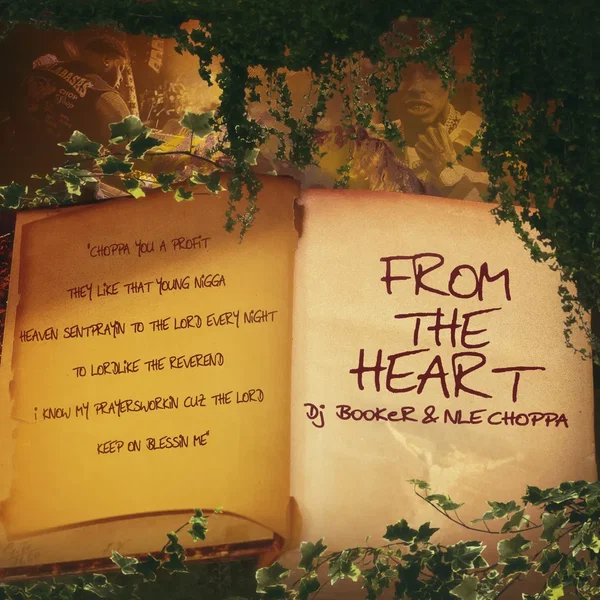 "CHOPPA YOU A PROFIT
THEY LIKE THAT YOUNG NIGGA
HEAVEN SENTPRAYIN TO THE LORD EVERY NIGHT
TO LORDLIKE THE REVEREND
i KNOW MY PRAYERSWORKIN CUZ THE LORD
KEEP ON BLESSIN ME"
FROM
THE
HEART
Dj BOOKER & NLE CHOPPA